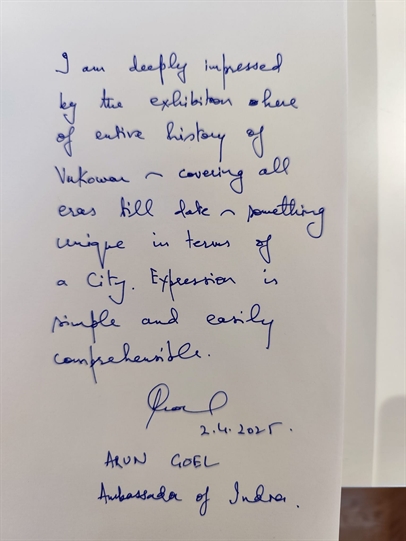 I am deeply impressed
by the exhibition here
of entire history of
Vukovar ~ covering all
eras till date ~ something
unique in terms of
a City. Expression is
simple and easily
comprehensible.
2.4.2025.
ARUN GOEL
Ambassador of India.